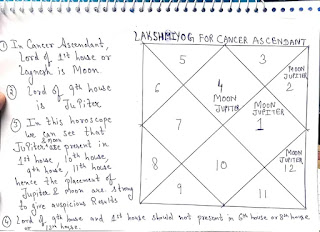 LAKSHMIYOG FOR CANCER ASCENDANT
① In Cancer Ascendant,
Lord of 1st house or
Lagnesh is Moon.
② Lord of 9th house
is JuPiter
③ In this horoscope
we can see that
JuPiter & moon are present in
1st house, 10th house,
9th house, 11th house
hence the placement of
Jupiter & Moon are strong
to give auspicious Results
④ Lord of 9th house and 1st house should not present in 6th house or 8th house
or 12th house.
5
3
6
4
MOON
JUPITER
2
MOON
JUPITER
7
MOON
JUPITER
1
8
10
MOON
JUPITER
12
9
11